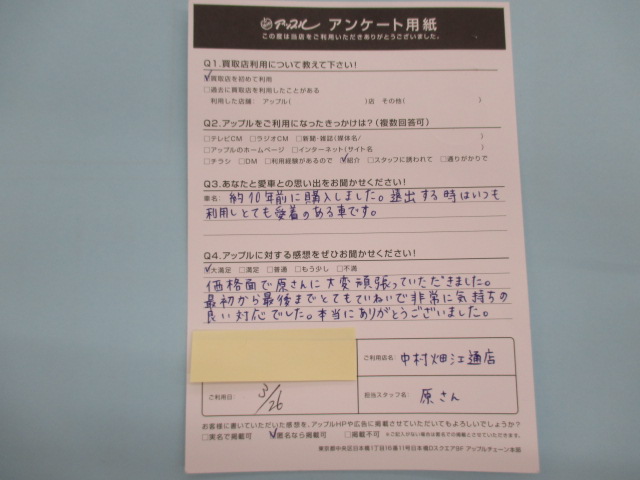 アップル アンケート用紙
この度は当店をご利用いただきありがとうございました。
Q1.買取店利用について教えて下さい!
☑買取店を初めて利用
□過去に買取店を利用したことがある
利用した店舗： アップル( )店 その他( )
Q2.アップルをご利用になったきっかけは?(複数回答可)
□テレビCM □ラジオCM □新聞・雑誌(媒体名/ )
□アップルのホームページ □インターネット(サイト名 )
□チラシ □DM □利用経験があるので ☑紹介 □スタッフに誘われて □通りがかりで
Q3.あなたと愛車との思い出をお聞かせください!
車名： 約10年前に購入しました。遠出する時はいつも
利用しとても愛着のある車です。
Q4.アップルに対する感想をぜひお聞かせください!
☑大満足 □満足 □普通 □もう少し □不満
価格面で原さんに大変頑張っていただきました。
最初から最後までとてもていねいで非常に気持ちの
良い対応でした。本当にありがとうございました。
ご利用店名： 中村畑江通店
ご利用日： 3/26
担当スタッフ名： 原さん
お客様に書いていただいた感想を、アップルHPや広告に掲載させていただいてもよろしいでしょうか?
□実名で掲載可 ☑匿名なら掲載可 □掲載不可 ※ご記入がない場合は匿名での掲載とさせていただきます。
東京都中央区日本橋1丁目16番11号日本橋Dスクエア8F アップルチェーン本部